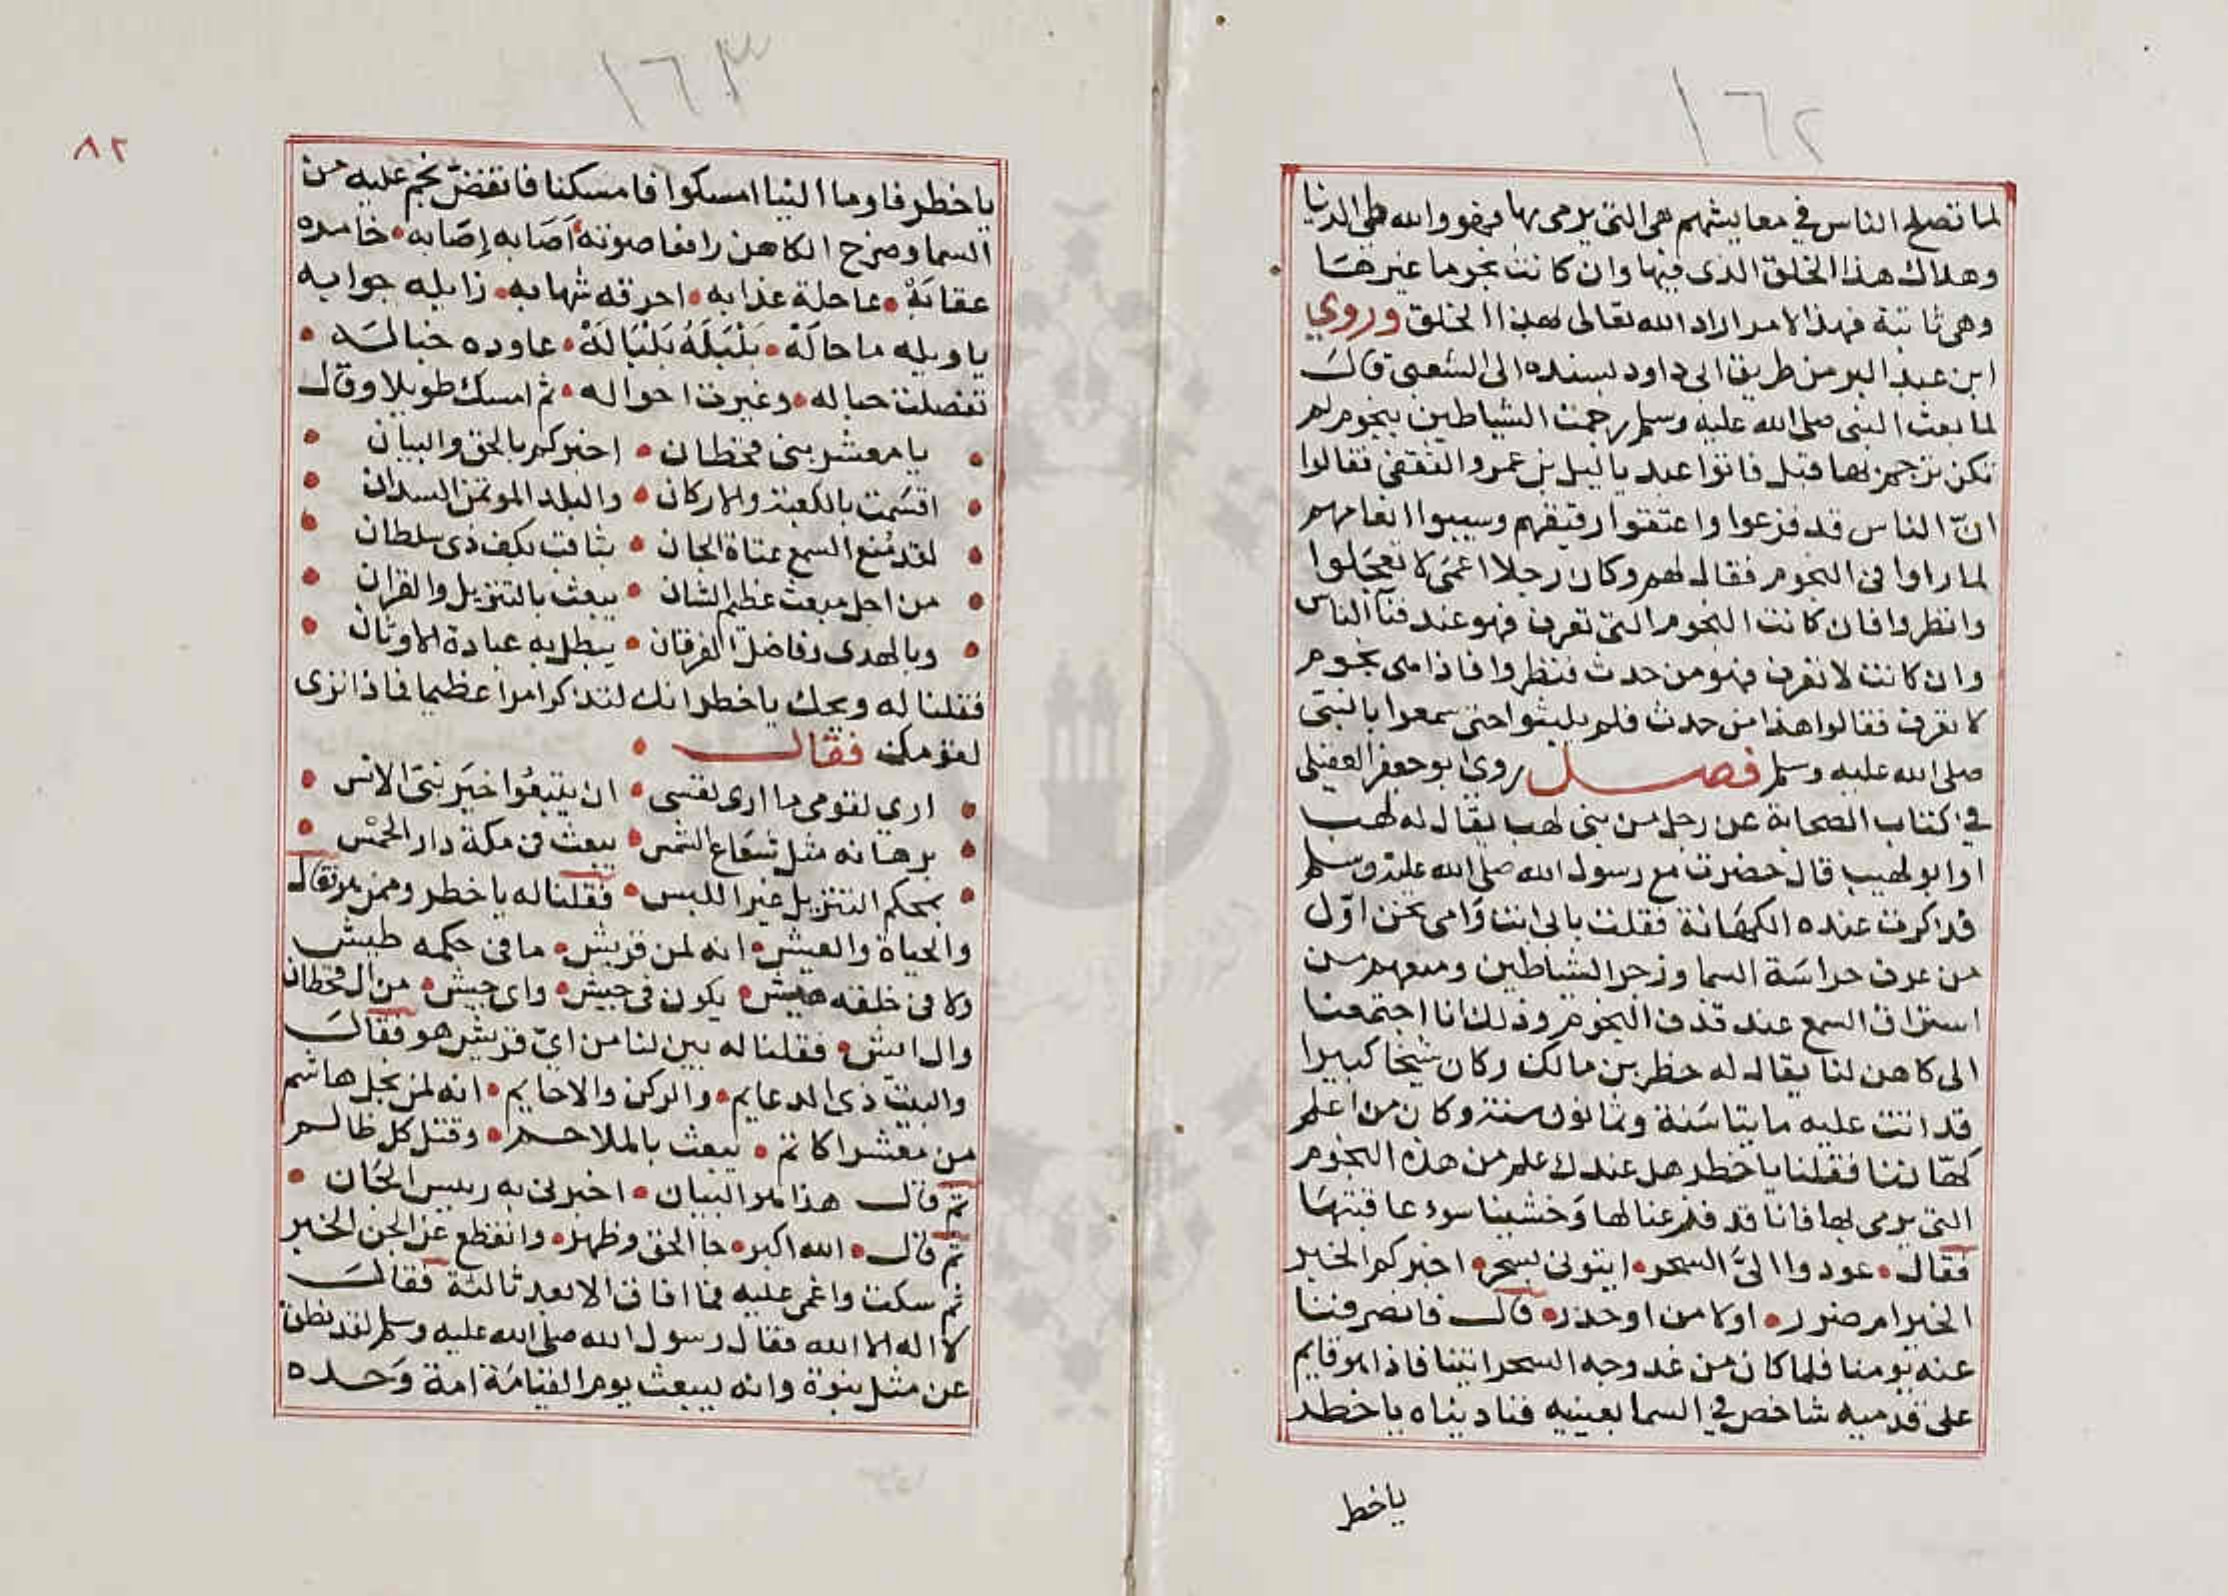 ١٦٢
لما تصلح الناس في معايشهم هي التي يرمي بها فهو والله طي الدنيا
وهلاك هذا الخلق الذى فيها وان كانت نجوما غيرها
وهى ثابتة فهذا الامر اراد الله تعالى لهذا الخلق وروي
ابن عبد البر من طريق ابى داود بسنده الى الشعبى قال
لما بعث النبى صلى الله عليه وسلم رجمت الشياطين بنجوم لم
تكن ترجم بها قبل فاتوا عبد ياليل بن عمرو الثقفى فقالوا
انّ الناس قد فزعوا واعتقوا رقيقهم وسيبوا انعامهم
لما راوا فى النجوم فقال لهم وكان رجلا اعمى لا تعجلوا
وانظروا فان كانت النجوم التى تعرف فهو عند فنآ الناس
وان كانت لا تعرف فهو من حدث فنظروا فاذا هى نجوم
لا تعرف فقالوا هذا من حدث فلم يلبثوا حتى سمعوا بالنبىّ
صلى الله عليه وسلم فصل روى ابو جعفر العقيلى
في كتاب الصحابة عن رجل من بنى لهب يقال له لهب
او ابو لهيب قال حضرت مع رسول الله صلى الله عليه وسلم
فذاكرت عنده الكهانة فقلت بابى انت وامى نحن اوّل
من عرف حراسة السما وزجر الشياطين ومنعهم من
استراق السمع عند قذف النجوم وذلك انا اجتمعنا
الى كاهن لنا يقال له خطر بن مالك وكان شيخا كبيرا
قد اتت عليه مايتا سنة وثمانون سنة وكان من اعلم
كهّاننا فقلنا يا خطر هل عندك علم من هذه النجوم
التى يرمى بها فانا قد فزعنا لها وخشينا سوء عاقبتها
فقال عودوا الىّ السحر ايتونى بسحر اخبركم الخبر
الخير ام ضرر اولامن او حذر قال فانصرفنا
عنه يومنا فلما كان من غد وجه السحر اتينا فاذا هو قايم
على قدميه شاخص في السما بعينيه فناديناه يا خطر
يا خطر
١٦٣
٨٢
يا خطر فاوما الينا امسكوا فامسكنا فانقضّ نجم عليه من
السما وصرخ الكاهن رافعا صوته اَصَابه إصَابه خامره
عقابَهْ عاجلة عذابه احرقه شهابه زايله جوابه
يا ويله ما حالَهْ بَلْبَلَهُ بَلْبَالَهْ عاوده خباله
تفصلت حباله وغيرت احواله ثم امسك طويلا وقال
يا معشر بنى قحطان اخبركم بالحق والبيان
اقسَمت بالكعبة والاركان والبلد الموتمن السدان
لقد مُنع السمع عتاة الجان بثاقب بكف ذى سلطان
من اجل مبعث عظيم الشان يبعث بالتنزيل والقران
وبالهدى وفاضل الفرقان يبطل به عبادة الاوثان
فقلنا له ويحك يا خطر انك لتذكر امرا عظيما فاذا ترى
لقومك فقال
ارى لقومى ما ارى لنفسى ان يتبعُوا خيَر نبىّ الانس
برهانه مثل شعَاع الشمس يبعث فى مكة دار الحمْس
بمحكم التنزيل غير اللبس فقلنا له يا خطر وممن هو فقال
والحياة والعيش انه لمن قريش ما فى حكمه طيش
ولا فى خلقه هيش يكون فى جيش واى جيش من ال قحطان
وال ايش فقلنا له بين لنا من اىّ قريش هو فقال
والبيت ذى الدعايم والركن والاحايم انه لمن نجل هاشم
من معشر اكاتم يبعث بالملاحم وقتل كل ظالم
ثم قال هذا هو البيان اخبرنى به رييس الجَان
ثم قال الله اكبر جا الحق وظهر وانقطع عن الجن الخبر
ثم سكت واغمى عليه فما افاق الا بعد ثالثة فقال
لا اله الا الله فقال رسول الله صلى الله عليه وسلم لقد نطق
عن مثل نبوة وانه ليبعث يوم القيامَة امة وَحده